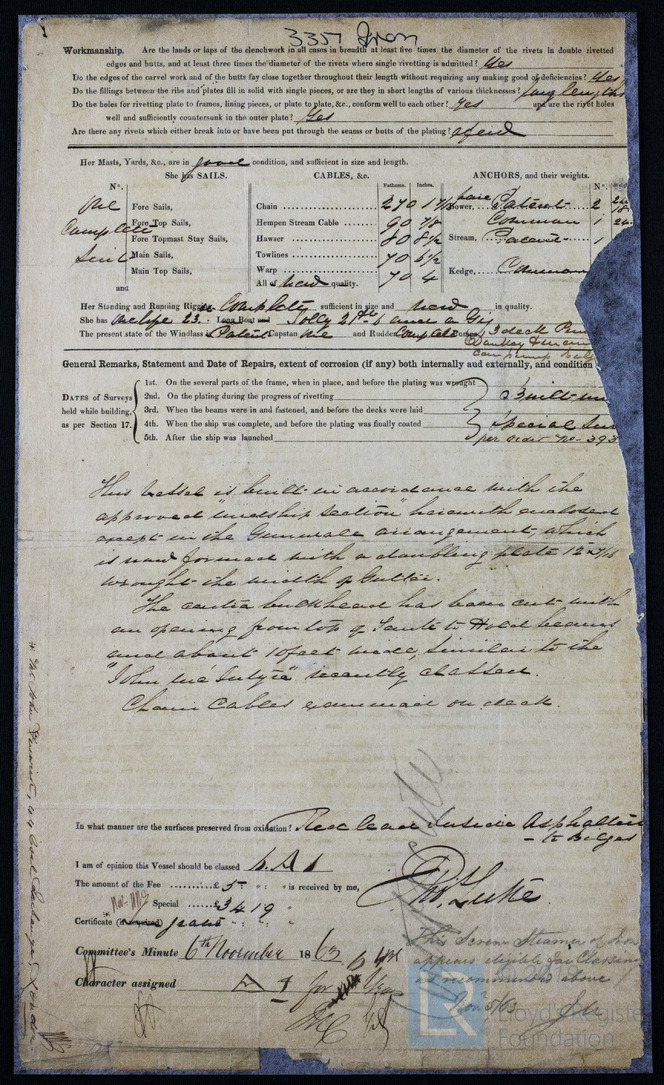 335 Iron
Workmanship. Are the lands or laps of the clenchwork in all cases in breadth at least five times the diameter of the rivets in double rivetted
edges and butts, and at least three times the diameter of the rivets where single rivetting is admitted? Yes
Do the edges of the carvel work and of the butts fay close together throughout their length without requiring any making good of deficiencies? Yes
Do the fillings between the ribs and plates fill in solid with single pieces, or are they in short lengths of various thicknesses? long lengths
Do the holes for rivetting plate to frames, lining pieces, or plate to plate, &c., conform well to each other? Yes and are the rivet holes
well and sufficiently countersunk in the outer plate? Yes
Are there any rivets which either break into or have been put through the seams or butts of the plating? a few
Her Masts, Yards, &c., are in good condition, and sufficient in size and length.
She has SAILS. CABLES, &c. ANCHORS, and their weights.
N°. Fathoms. Inches. N°.
One Fore Sails, Chain 270 Bower, Patent 2
Complete Fore Top Sails, Hempen Stream Cable 90 7/8 Common 1
Fore Topmast Stay Sails, Hawser 80 8 1/2 Stream, Patent 1
Suit Main Sails, Towlines 70 6 1/2
Main Top Sails, Warp 70 4 Kedge, Common
and All of New quality.
Her Standing and Running Rigging Complete sufficient in size and new in quality.
She has one life 23. Long Boat and Jolly 21 ft and a Gig
The present state of the Windlass is Patent Capstan one and Rudder Complete Pumps 3 deck
General Remarks, Statement and Date of Repairs, extent of corrosion (if any) both internally and externally, and condition
DATES of Surveys held while building, as per Section 17.
1st. On the several parts of the frame, when in place, and before the plating was wrought
2nd. On the plating during the progress of rivetting Built
3rd. When the beams were in and fastened, and before the decks were laid
4th. When the ship was complete, and before the plating was finally coated Special
5th. After the ship was launched per order No. 393
This Vessel is built in accordance with the
approved midship section herewith enclosed
except in the Gunwale arrangement, which
is now formed with a doubling plate 12 x 7/16
wrought the width of Gutter.
The centre bulkhead has been cut with
an opening from top of Tank to Hold beams
and about 10 feet wide, similar to the
"John recently classed.
Chain Cables examined on deck.
In what manner are the surfaces preserved from oxidation? Red lead inside Asphaltum
to Bilges
I am of opinion this Vessel should be classed A 1
The amount of the Fee £5 " : " is received by me,
Special £34 19 Luke.
Certificate (if required)
Committee's Minute 6th November 1863
This Screw Steamer of Iron
appears eligible for Classing
as recommended above
5/63
Character assigned A 1 for Years
LR Lloyd's Register
Foundation